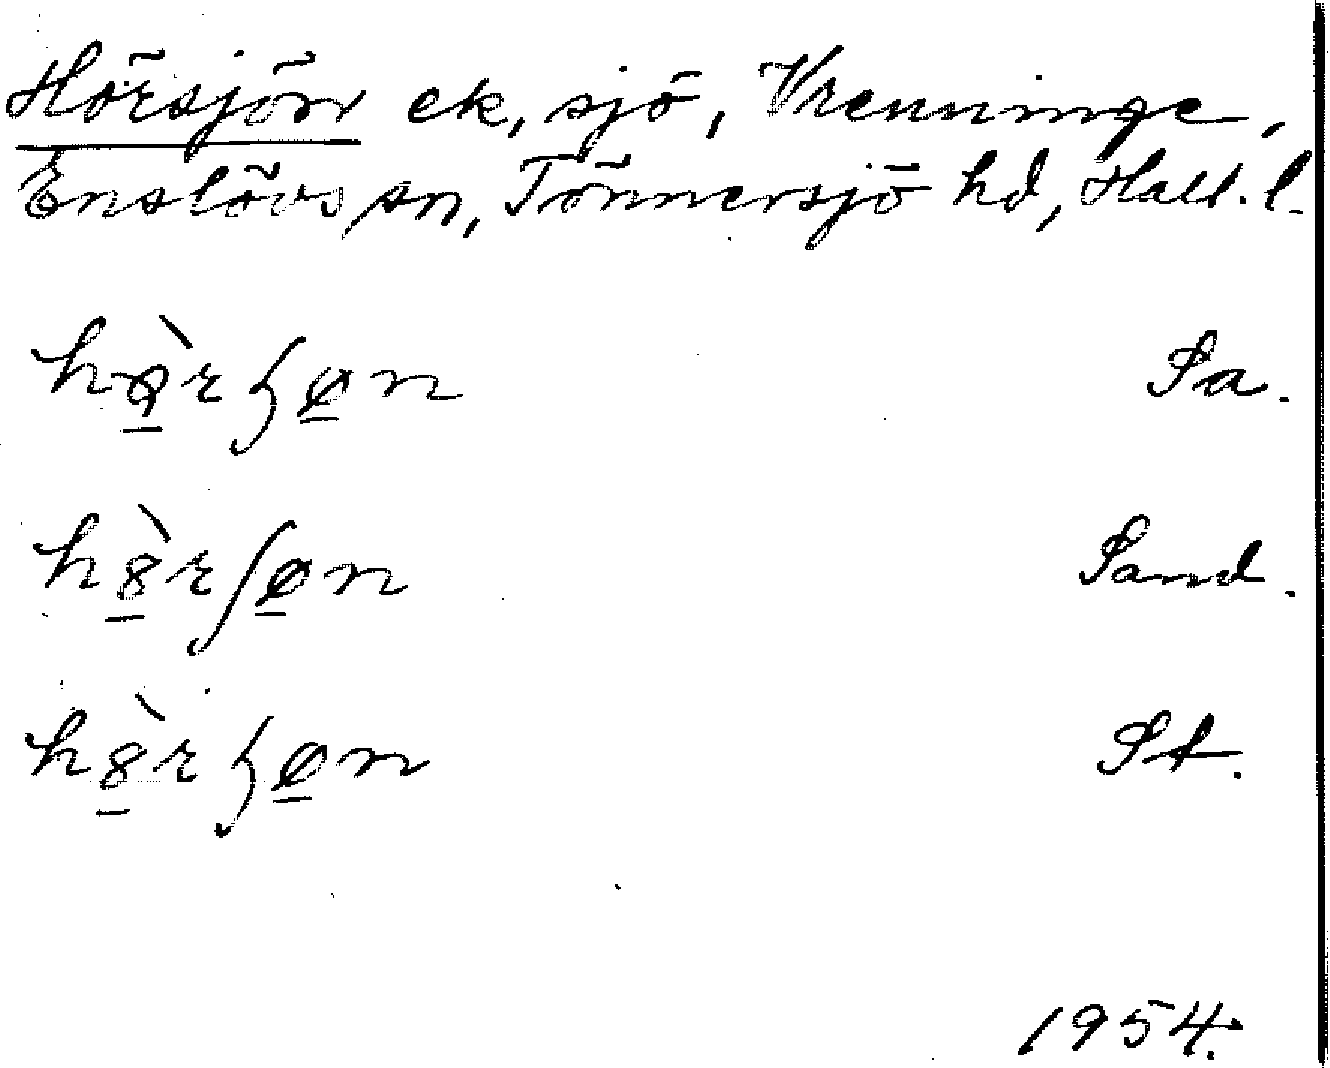 Hörsjön ek, sjö, Vrenninge,
Enslövs sn, Tönnersjö hd, Hall. l.
Sa.
Sand.
St.
1954.